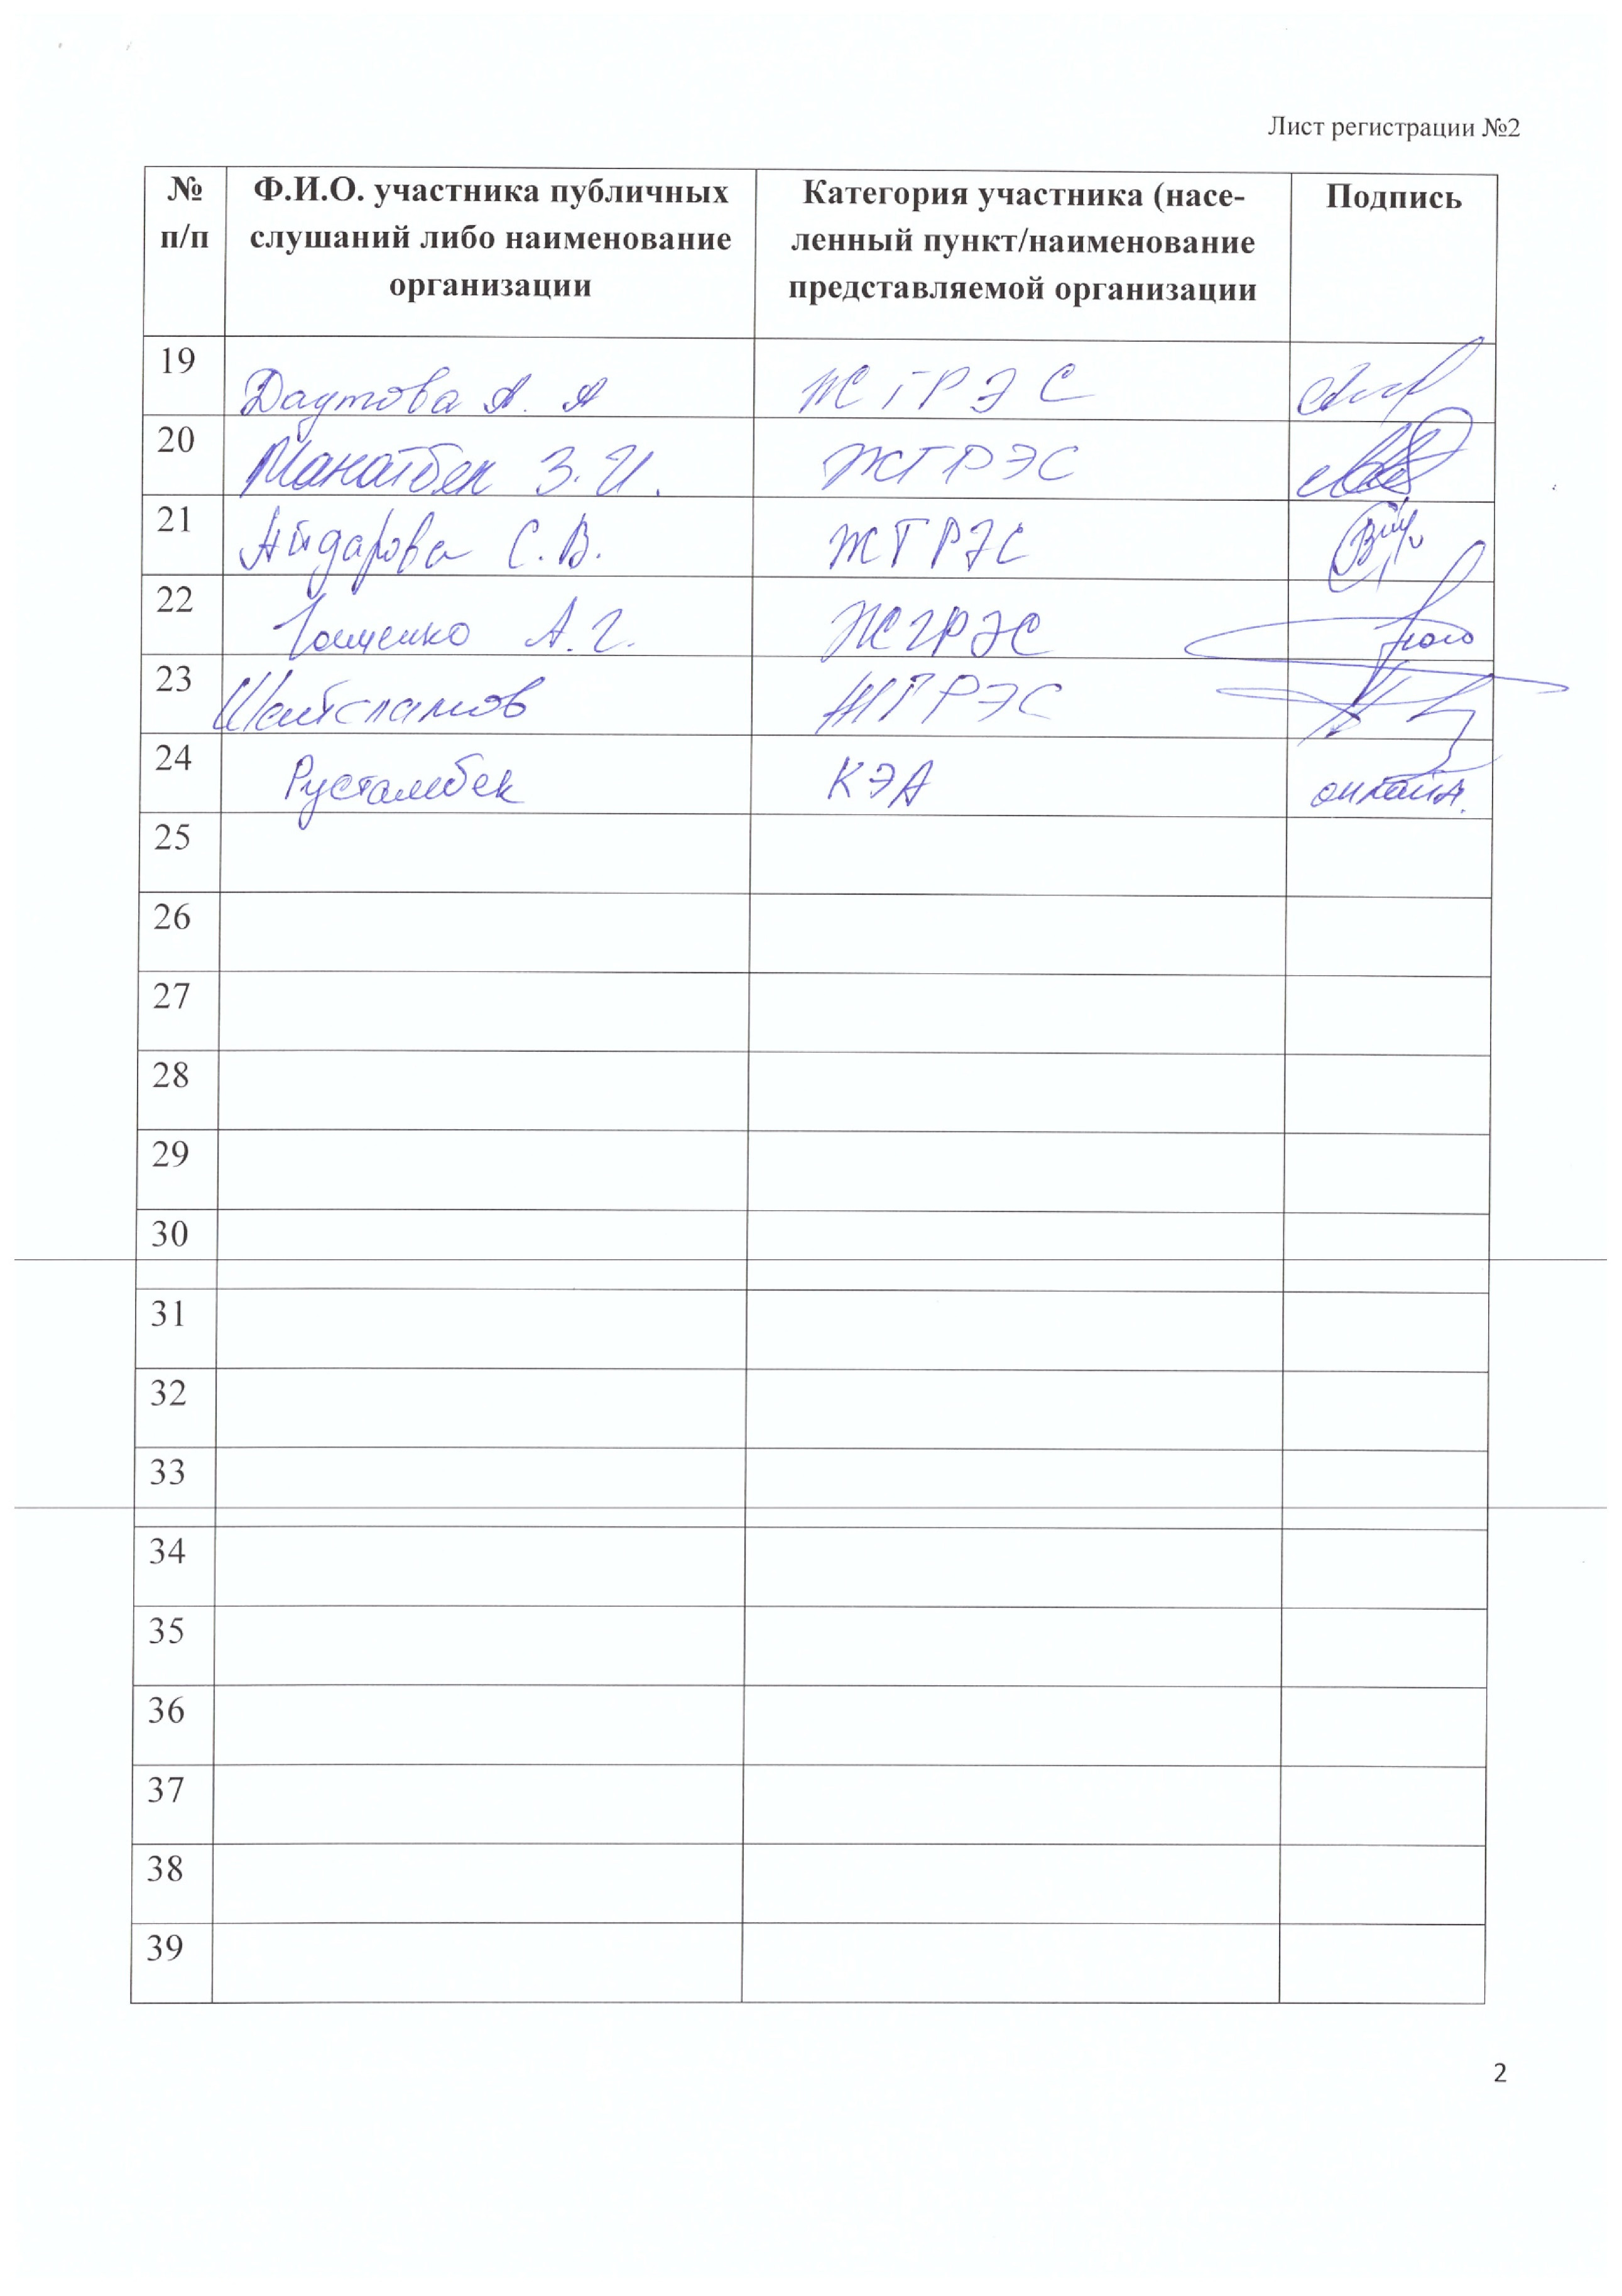 Лист регистрации №2
№ п/п Ф.И.О. участника публичных слушаний либо наименование организации Категория участника (насе-ленный пункт/наименование представляемой организации Подпись
19 Даутова А. А ЖГРЭС
20 Манатбек З.И. ЖГРЭС
21 Айдарова С.В. ЖГРЭС
22 А.Г. ЖГРЭС
23 ЖГРЭС
24 Рустамбек КЭА онлайн.
25
26
27
28
29
30
31
32
33
34
35
36
37
38
39
2